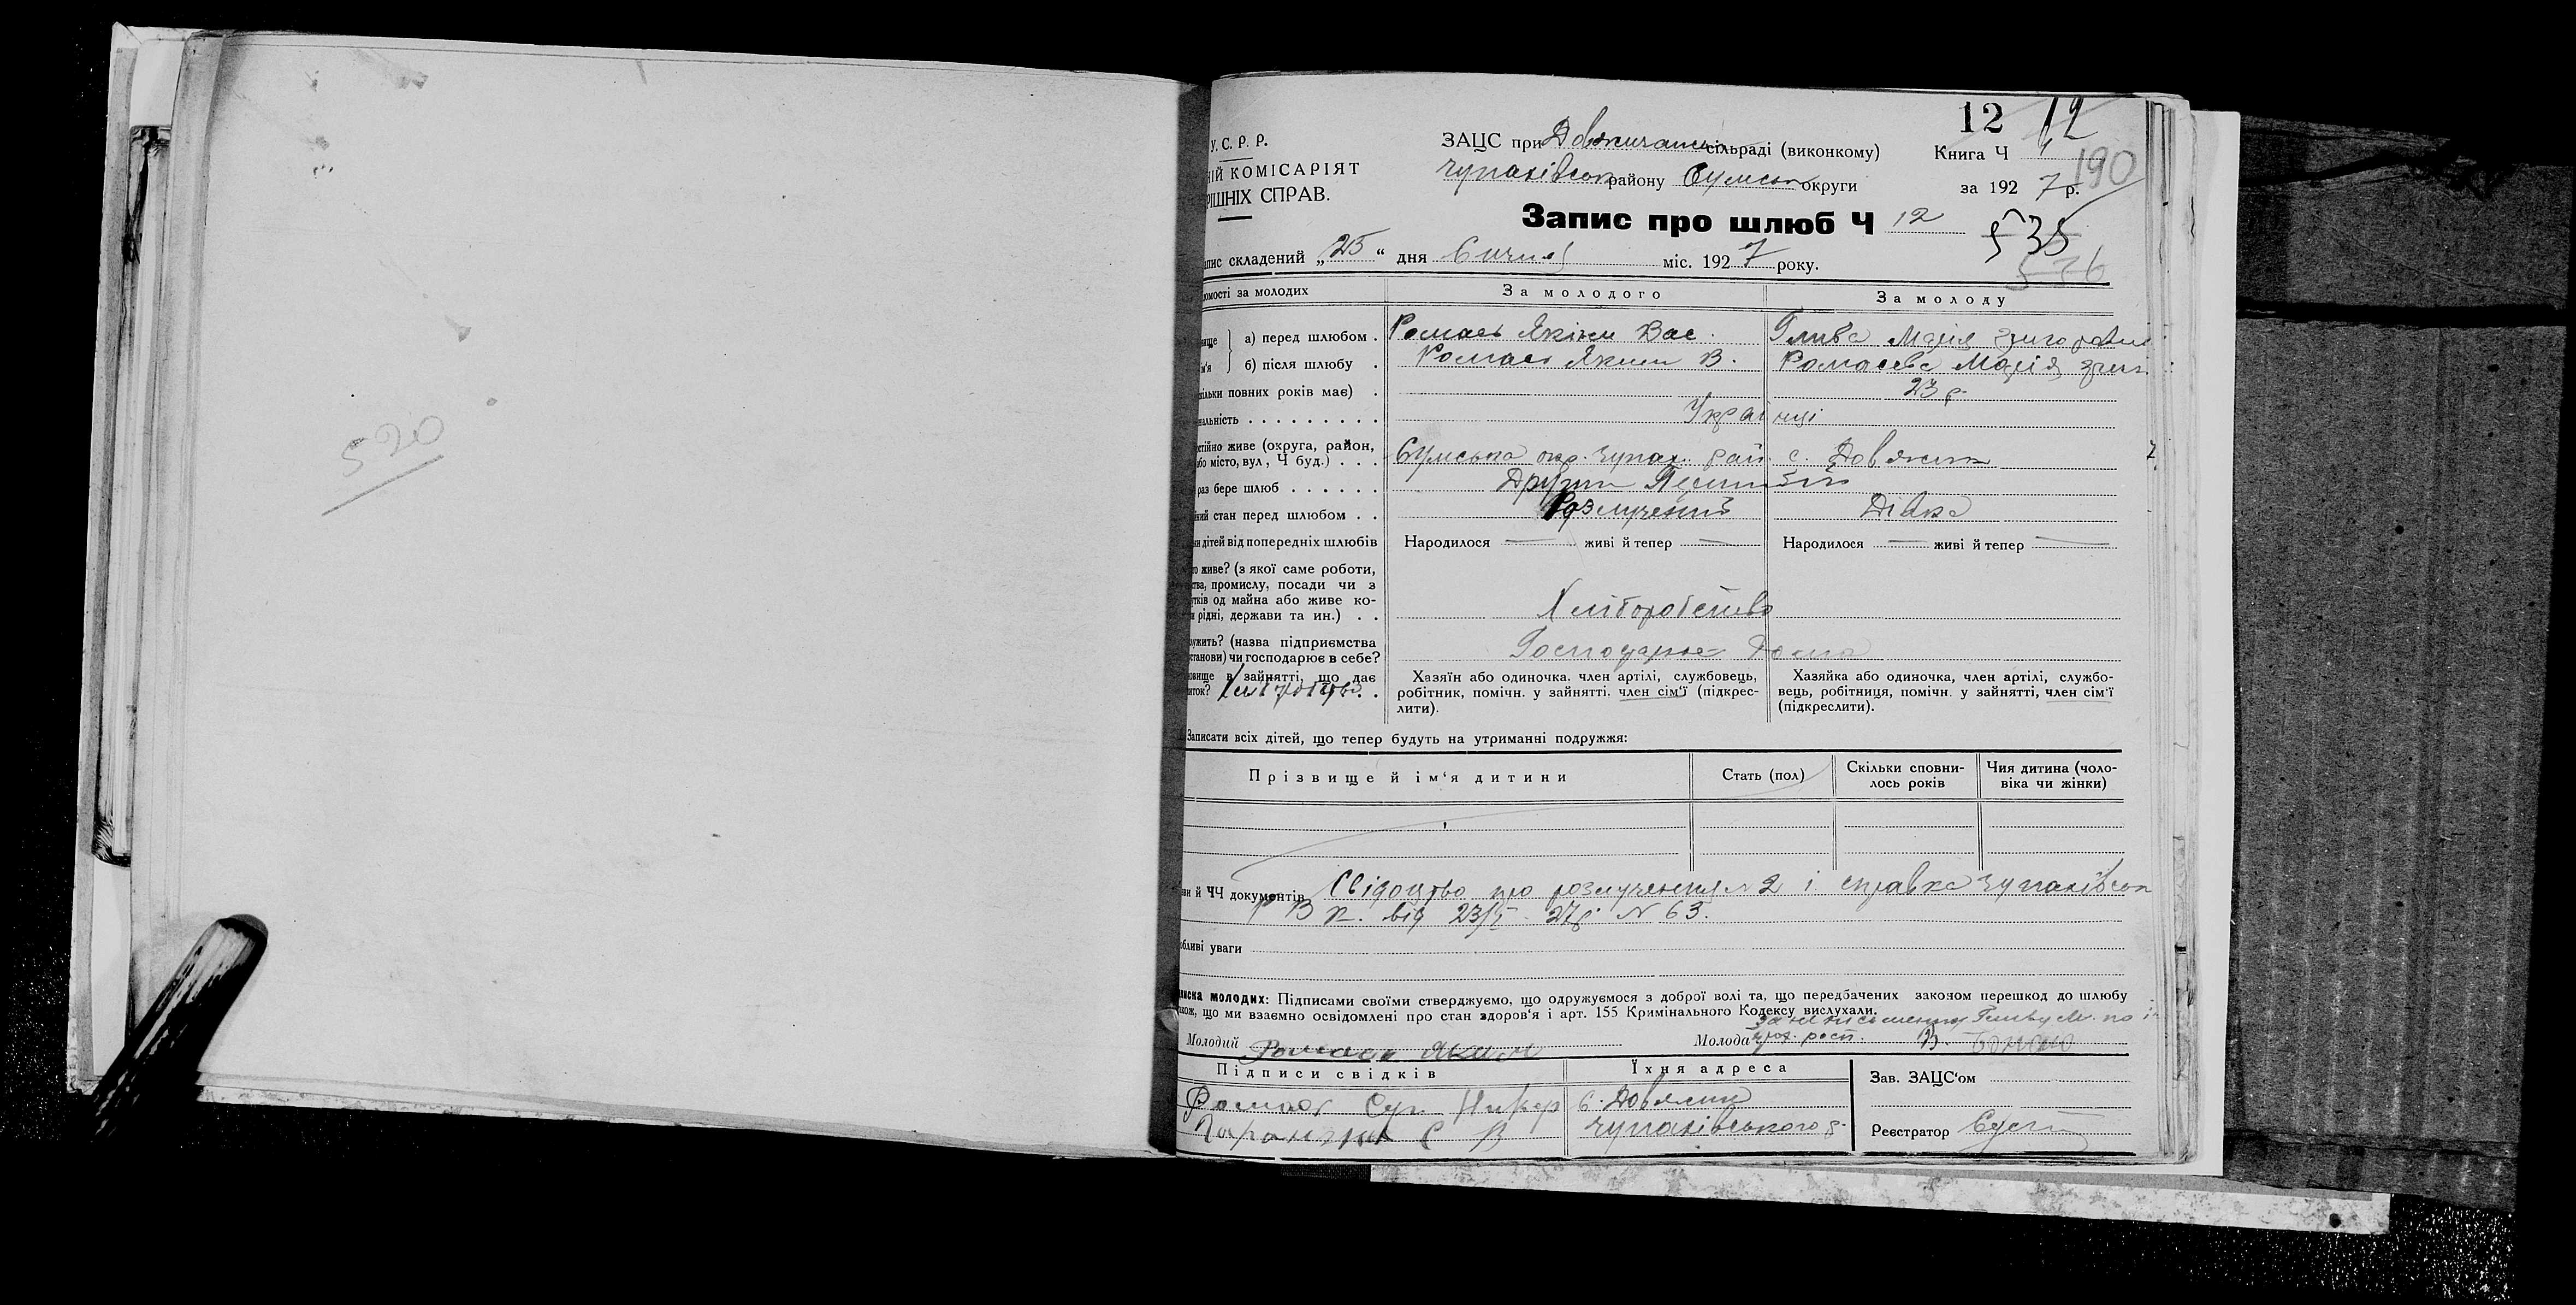 520
12 12
У. С. Р. Р.
НІЙ КОМІСАРІЯТ
РІШНІХ СПРАВ.
ЗАЦС при Довжичанс сільраді (виконкому)
Книга Ч 1
190
Чупахівськ району Сумськ округи
за 1927 р.
Запис про шлюб Ч 12
535
536
апис складений „25“ дня Січня міс. 1927 року.
омості за молодих
За молодого
За молоду
вище а) перед шлюбом . Ромась Якім Вас. Глива Марія Григоровн
ім'я б) після шлюбу . Ромась Яким В. Ромасева Марія Григ
кільки повних років має) . 23 р.
нальність . . . . . . . . . Українці
стійно живе (округа, район,
або місто, вул, Ч буд.) . . . Сумська окр. Чупах. рай. с. Довжик
раз бере шлюб . . . . . . Другий Перший
ний стан перед шлюбом . . Розлучений Дівка
ни дітей від попередніх шлюбів Народилося — живі й тепер — Народилося — живі й тепер —
го живе? (з якої саме роботи,
ства, промислу, посади чи з
утків од майна або живе ко-
и рідні, держави та ин.) . . Хліборобство
лужить? (назва підприємства
станови) чи господарює в себе? Господарює дома
овище в зайнятті, що дає
иток? Хліборобство . .
Хазяїн або одиночка, член артілі, службовець,
робітник, помічн. у зайнятті, член сім'ї (підкрес-
лити).
Хазяйка або одиночка, член артілі, службо-
вець, робітниця, помічн. у зайнятті, член сім'ї
(підкреслити).
Записати всіх дітей, що тепер будуть на утриманні подружжя:
Прізвище й ім'я дитини
Стать (пол)
Скільки сповни-
лось років
Чия дитина (чоло-
віка чи жінки)
ви й ЧЧ документів Свідоцтво про розлучення №2 і справка Чупахівськ
Р В К. від 23/I 27р. № 63.
обливі уваги
писка молодих: Підписами своїми стверджуємо, що одружуємося з доброї волі та, що передбачених законом перешкод до шлюбу
акож, що ми взаємно освідомлені про стан здоров'я і арт. 155 Кримінального Кодексу вислухали.
за неписьменну Гливу М. по її
Молодий Ромась Яким
Молода рост. В.
Підписи свідків
Їхня адреса
Зав. ЗАЦС'ом
Ромась с. Довжик
С В Чупахівського р.
Реєстратор